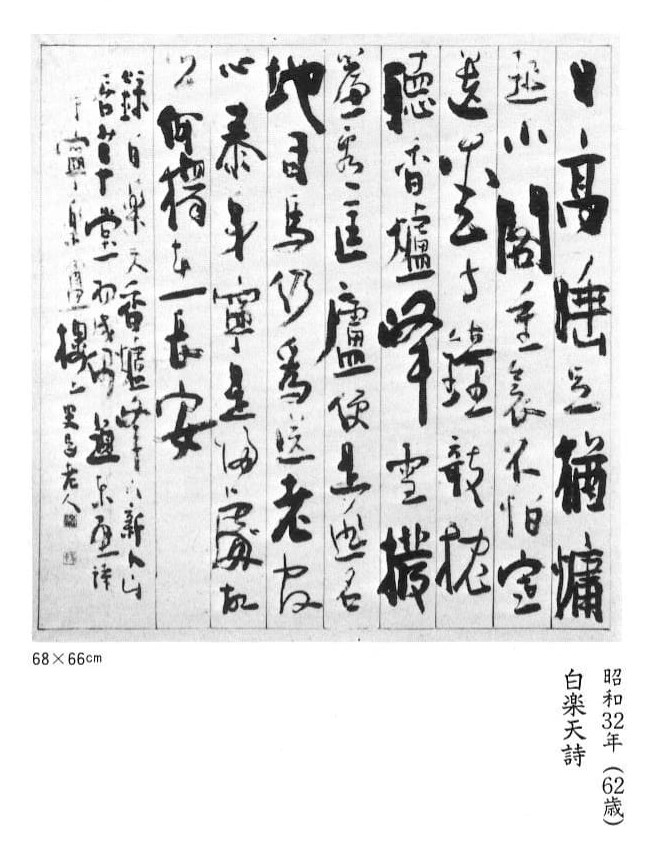 日高睡足猶慵
起小閣重衾不怕寒
遺愛寺鐘欹枕
聽香爐峰雪撥
簾看匡廬便是逃名
地司馬仍為送老官
心泰身寧是歸處故
郷何獨在長安
錄白樂天香爐峯下新卜山
居草堂初成偶題東壁詩
于寧樂 樓上 老人
68×66cm
昭和32年(62歳)
白楽天詩